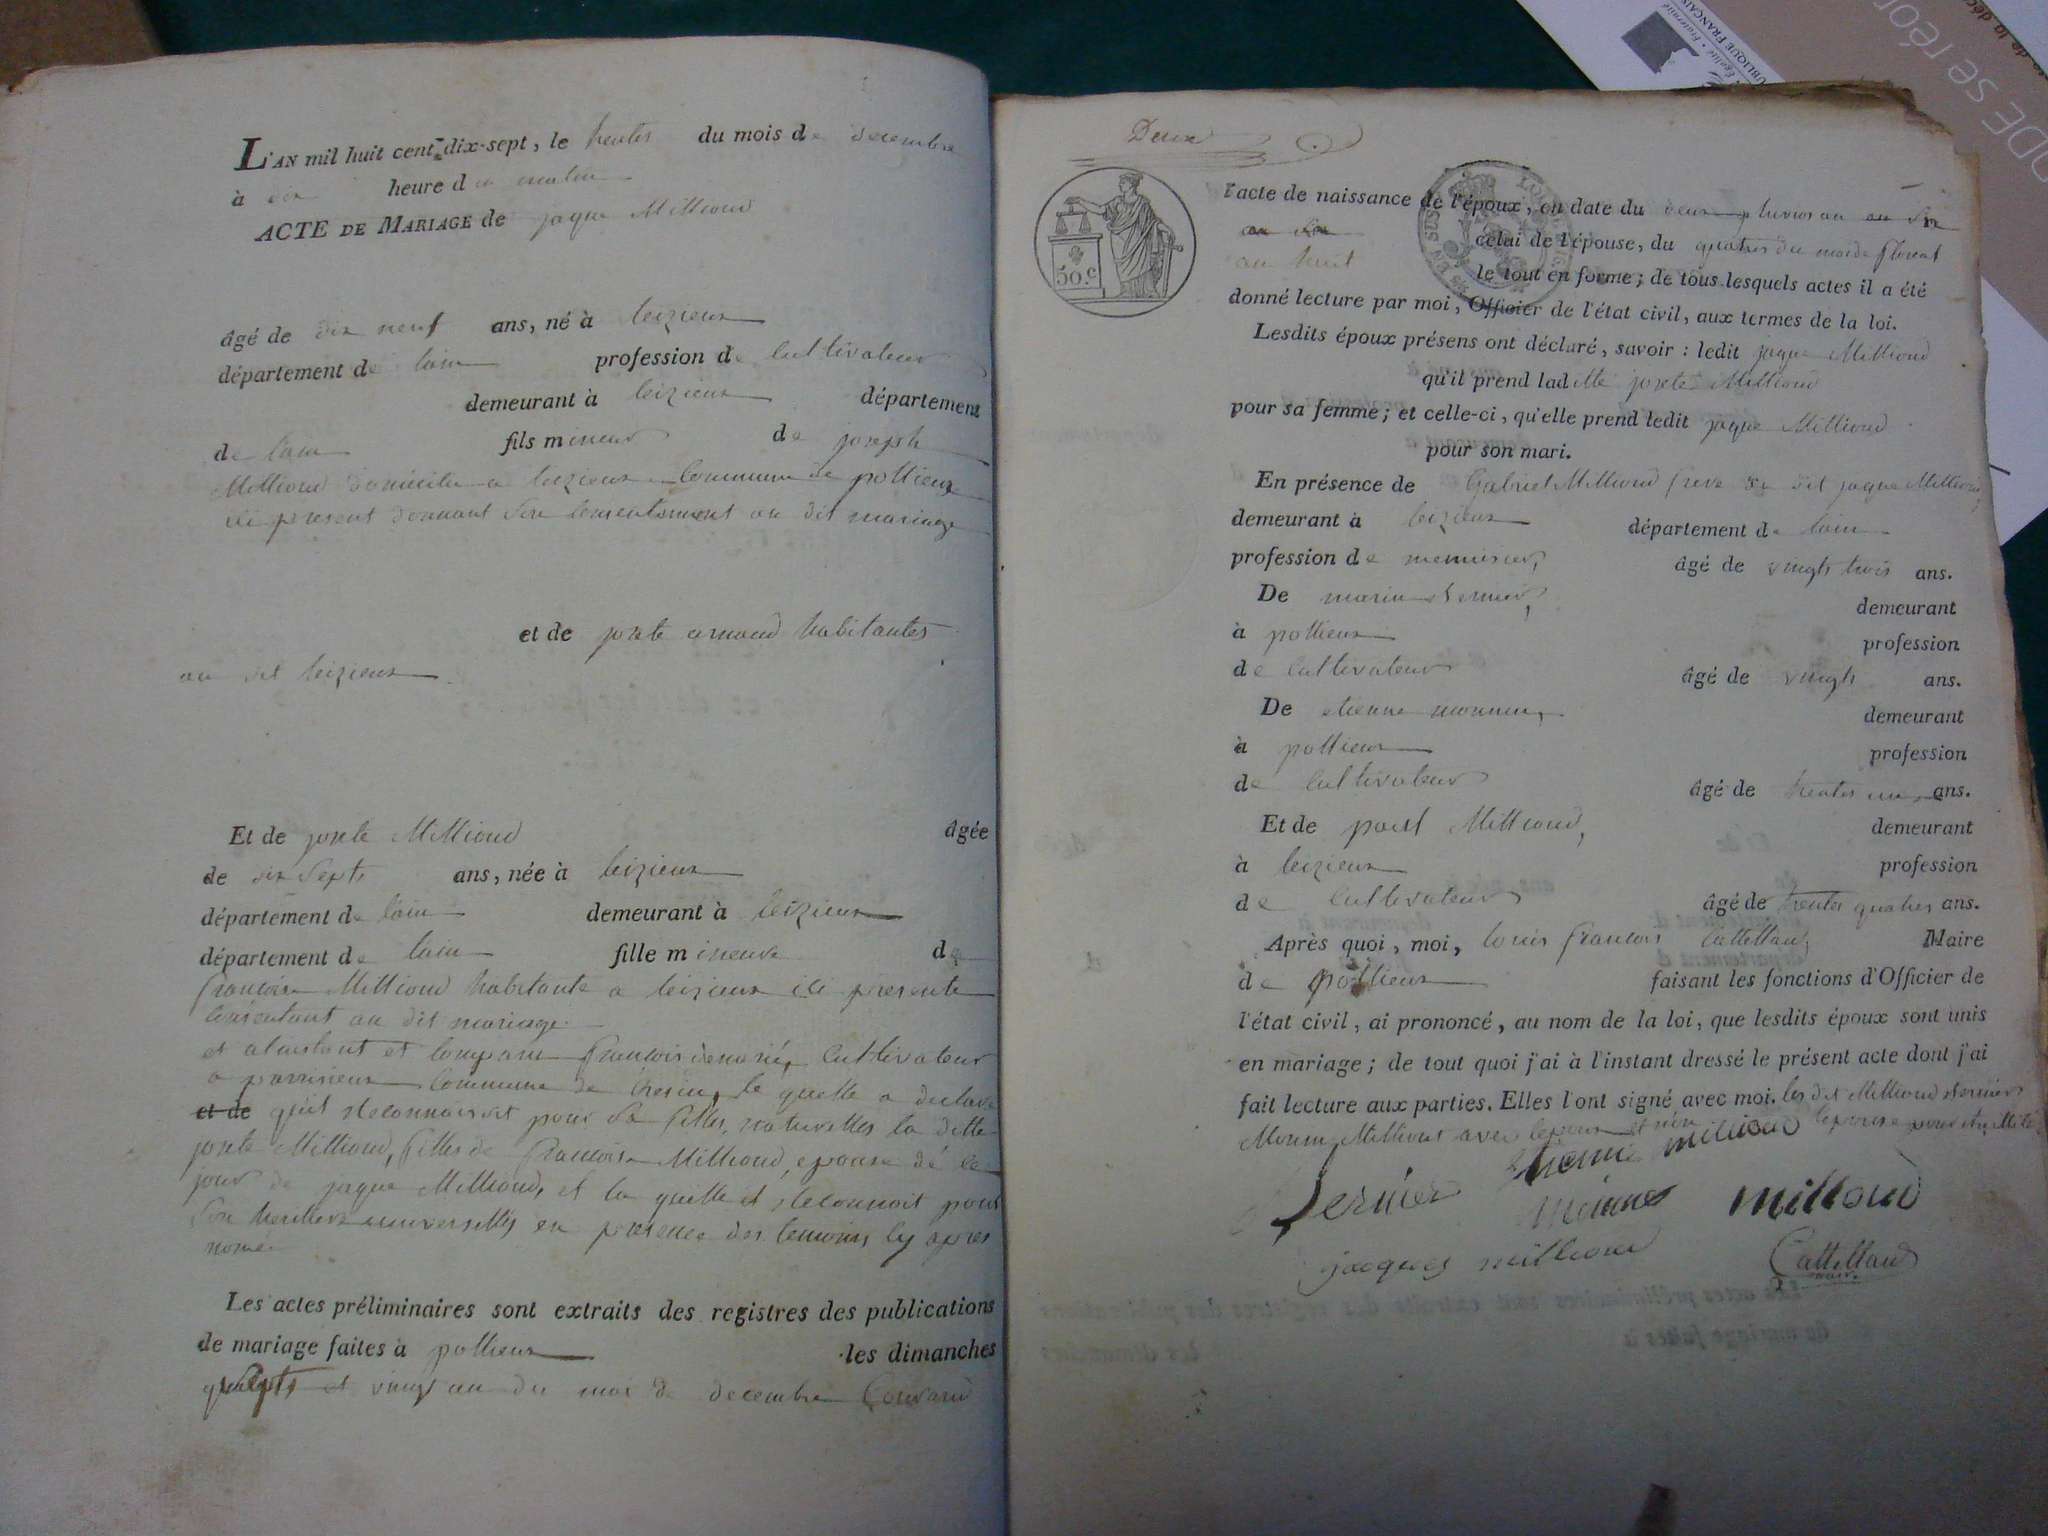 L'AN mil huit cent dix-sept, le trentes du mois de decembre
à dix heure du matin
ACTE DE MARIAGE de jaque Millioud
âgé de dix neuf ans, né à leizieux
département de lain profession de cultivateur
demeurant à leizieux département
de lain fils mineur de joseph
Millioud domicilie a leizieux Commune de pollieux
ici present donnant son consentement au dit mariage
et de josete arnaud habitantes
au dit leizieux
Et de josete Millioud âgée
de dix septs ans, née à leizieux
département de lain demeurant à leizieux
département de lain fille mineure de
francoise Millioud habitante a leizieux ici presente
consentant au dit mariage
et a linstant et comparu francois cultivateur
a parissieux Commune de la quelle a declare
et de quil reconnoissoit pour sa filles naturelles la ditte
josete Millioud, filles de francoise Millioud, epouse dé ce
jour de jaque Millioud, et la quelle il reconnoit pour
son heritiere universelles en presence des temoins cy apres
nomé
Les actes préliminaires sont extraits des registres des publications
de mariage faites à pollieux les dimanches
septs et vingt un du moi de decembre Courand
Deux
50 c
l'acte de naissance de l'époux, en date du deux pluvios an an six
an six celui de l'épouse, du quatres du mois de floreat
an huit le tout en forme; de tous lesquels actes il a été
donné lecture par moi, Officier de l'état civil, aux termes de la loi.
Lesdits époux présens ont déclaré, savoir: ledit jaque Millioud
qu'il prend laditte josete Millioud
pour sa femme; et celle-ci, qu'elle prend ledit jaque Millioud
pour son mari.
En présence de Gabriel Millioud frere du dit jaque Millioud,
demeurant à leizieux département de lain
profession de menuisier, âgé de vingts trois ans.
De marin dernier, demeurant
à pollieux profession
de cultivateur âgé de vingts ans.
De etienne monnier, demeurant
à pollieux profession
de cultivateur âgé de trentes un ans.
Et de Millioud, demeurant
à leizieux profession
de cultivateur âgé de trentes quatres ans.
Après quoi, moi, louis francois Cattelland Maire
de pollieux faisant les fonctions d'Officier de
l'état civil, ai prononcé, au nom de la loi, que lesdits époux sont unis
en mariage; de tout quoi j'ai à l'instant dressé le présent acte dont j'ai
fait lecture aux parties. Elles l'ont signé avec moi. les dit Millioud dernier
Millioud avec lepoux et non lepouse pour etre
millioud
Dernier millioud
jacques millioud Cattelland
maire